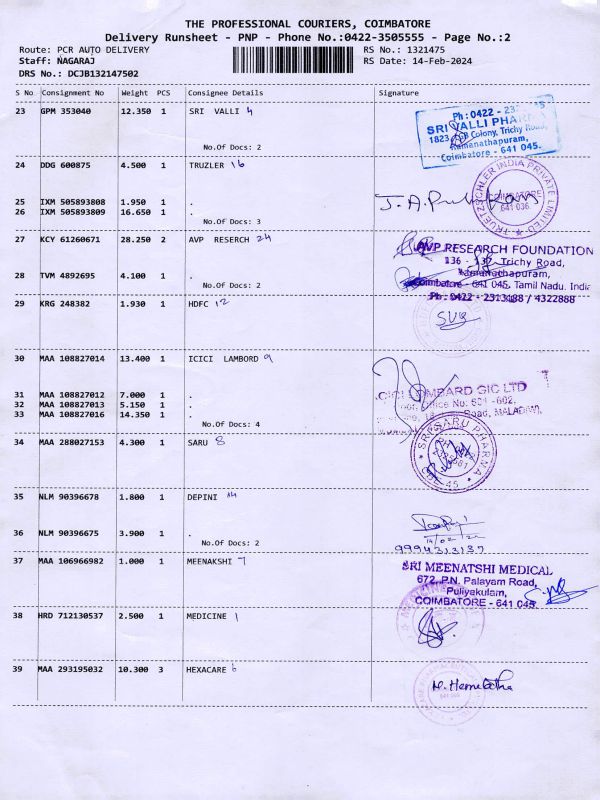 THE PROFESSIONAL COURIERS, COIMBATORE
Delivery Runsheet - PNP - Phone No.:0422-3505555 - Page No.:2
Route: PCR AUTO DELIVERY RS No.: 1321475
Staff: NAGARAJ RS Date: 14-Feb-2024
DRS No.: DCJB132147502
S No Consignment No Weight PCS Consignee Details Signature
23 GPM 353040 12.350 1 SRI VALLI 4
No.Of Docs: 2
Ph: 0422 -
SRI VALLI PHARMA
Colony, Trichy Road,
Ramanathapuram,
Coimbatore - 641 045.
24 DDG 600875 4.500 1 TRUZLER 16
25 IXM 505893808 1.950 1 .
26 IXM 505893809 16.650 1 .
No.Of Docs: 3
TRUETZSCHLER INDIA PRIVATE LIMITED
COIMBATORE
641 036.
27 KCY 61260671 28.250 2 AVP RESERCH 24
28 TVM 4892695 4.100 1 .
No.Of Docs: 2
AVP RESEARCH FOUNDATION
136 - 137, Trichy Road,
Ramanathapuram,
Coimbatore - 641 045, Tamil Nadu. India
Ph: 0422 - 2313188 / 4322888
29 KRG 248382 1.930 1 HDFC 12
30 MAA 108827014 13.400 1 ICICI LAMBORD 9
31 MAA 108827012 7.000 1 .
32 MAA 108827013 5.150 1 .
33 MAA 108827016 14.350 1 .
No.Of Docs: 4
ICICI LOMBARD GIC LTD
Office No: 601 -602,
Road, MALAD(W),
34 MAA 288027153 4.300 1 SARU 8
SRI SARU PHARMA
35 NLM 90396678 1.800 1 DEPINI 14
36 NLM 90396675 3.900 1 .
No.Of Docs: 2
37 MAA 106966982 1.000 1 MEENAKSHI 7
SRI MEENATSHI MEDICAL
672, P.N. Palayam Road,
Puliyakulam,
COIMBATORE - 641 045
38 HRD 712130537 2.500 1 MEDICINE 1
39 MAA 293195032 10.300 3 HEXACARE 6